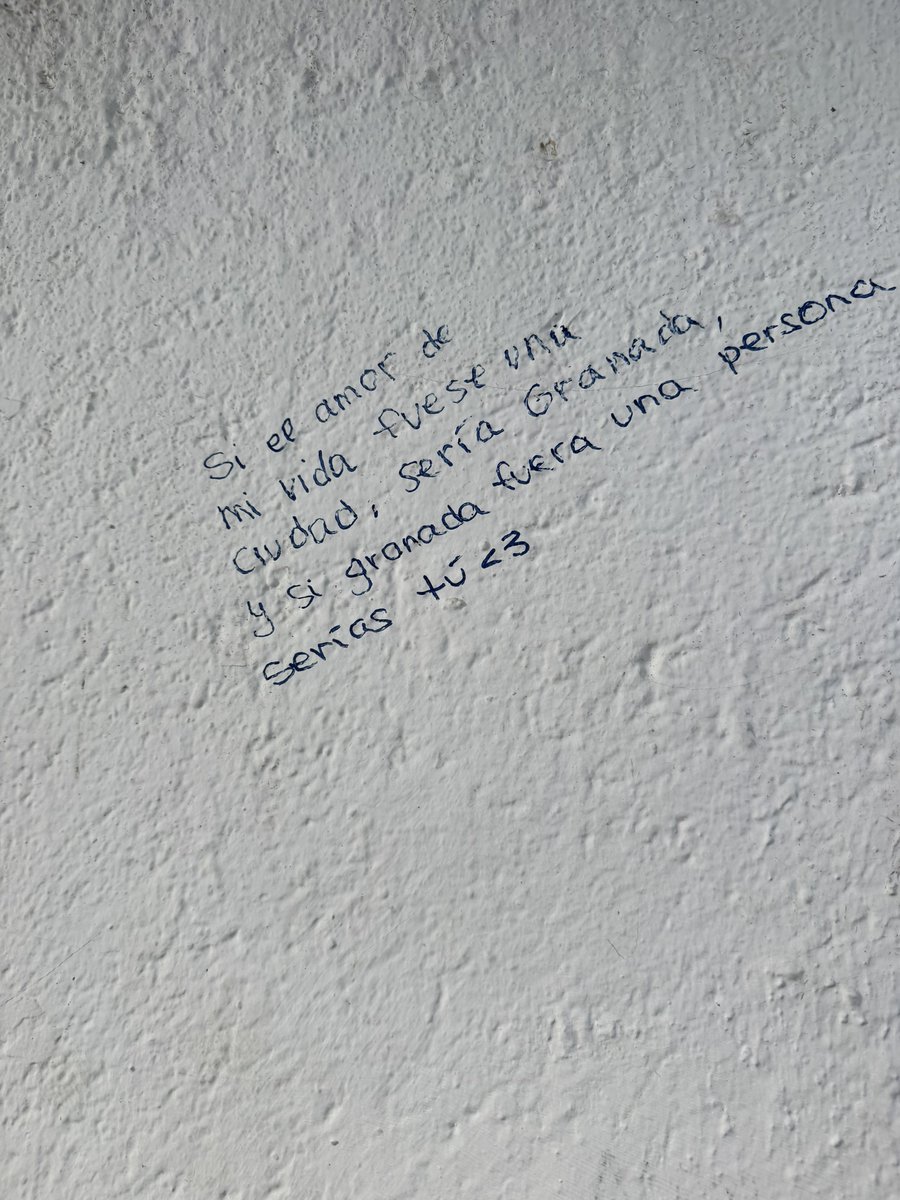 Si el amor de
mi vida fuese una
ciudad, sería Granada,
y si granada fuera una persona
serías tú <3